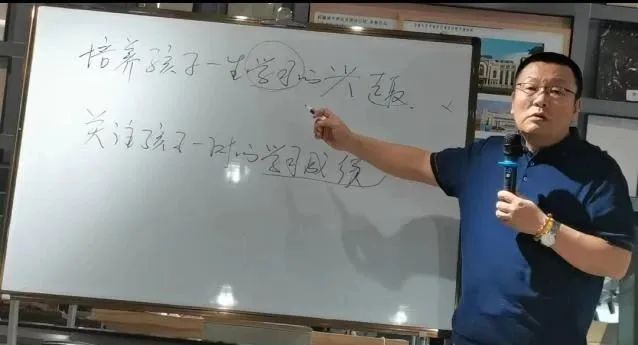 培养孩子一生学习的兴趣
关注孩子一时的学习成绩